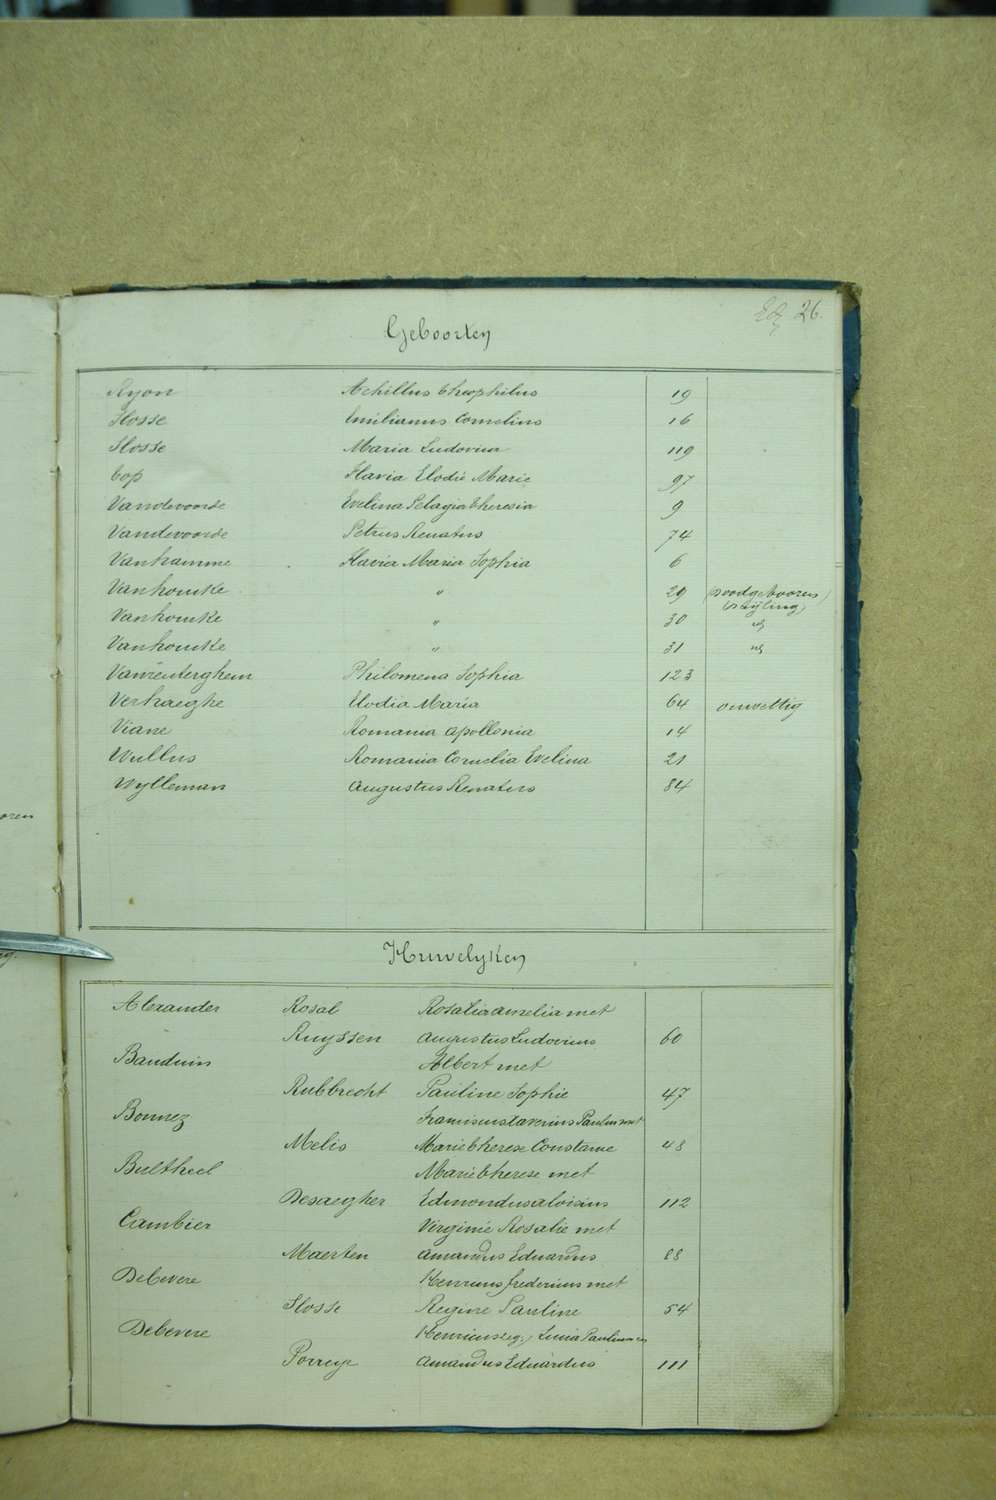 26.
Geboorten
Ryon Achillus Theophilus 19
Slosse Emilianus Cornelius 16
Slosse Maria Ludovica 119
Top Flavia Elodie Marie 97
Vandevoorde Evelina Pelagia Theresia 9
Vandevoorde Petrus Renatus 74
Vanhamme Flavia Maria Sophia 6
Vanhoucke " 29 (doodgebooren)
Vanhoucke " 30 id
Vanhoucke " 31 id
Philomena Sophia 123
Verhaeghe Elodia Maria 64 onwettig
Viane Romania Apollonia 14
Wullus Romania Cornelia Evelina 21
Wylleman Augustus Renatus 84
Huwelyken
Alexander Rosal Rosalia Amelia met
Ruyssen Augustus Ludovicus 60
Bauduin Albert met
Rubbrecht Pauline Sophie 47
Bonnez Franciscus Xaverius Paulus met
Melis Marie Therese Constance 48
Bultheel Marie Therese met
Desaegher Edmondus Aloisius 112
Cambier Virginie Rosalie met
Maerten Amandus Eduardus 88
Debevere Henricus Fredericus met
Slosse Regine Pauline 54
Debevere
Porreye Amandus Eduardus 111